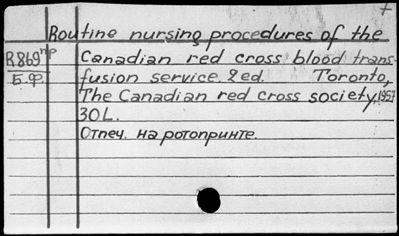 Routine nursing procedures of the
R869нр Canadian red cross blood trans-
Б.Ф. fusion service. 2 ed. Toronto,
The Canadian red cross society, 1957
30 L.
Отпеч. на ротопринте.